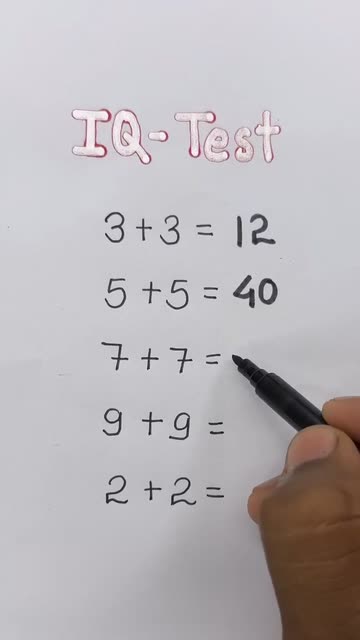 IQ-Test
3+3 = 12
5+5 = 40
7+7 =
9+9 =
2+2 =